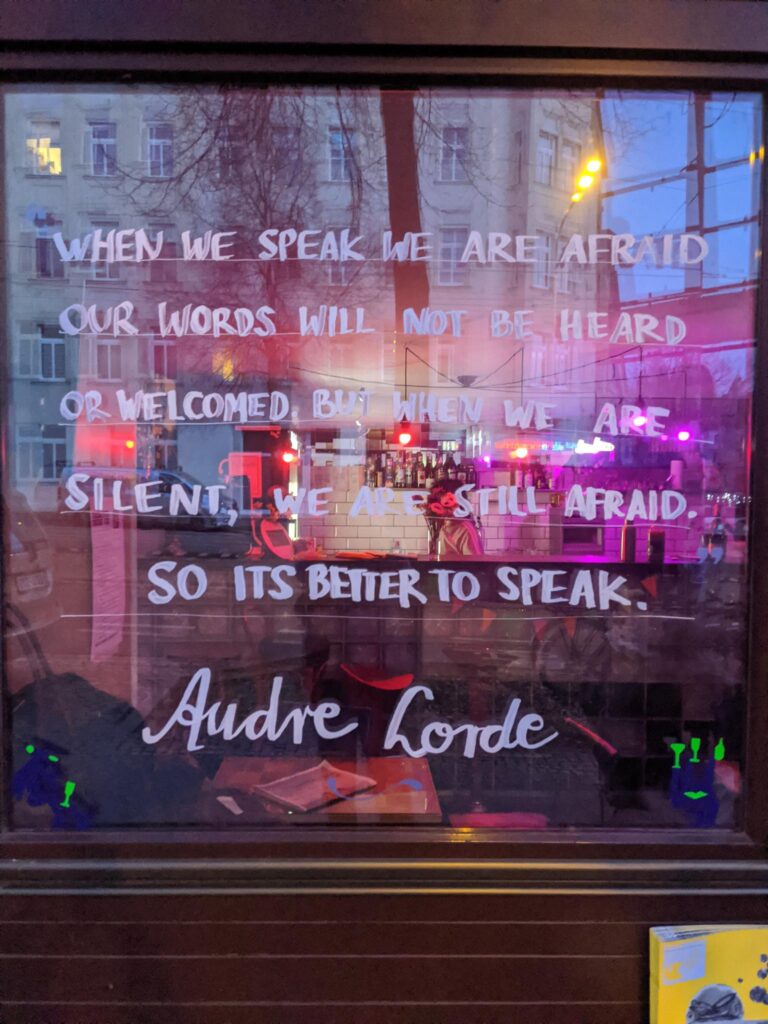 WHEN WE SPEAK WE ARE AFRAID
OUR WORDS WILL NOT BE HEARD
OR WELCOMED. BUT WHEN WE ARE
SILENT, WE ARE STILL AFRAID.
SO ITS BETTER TO SPEAK.
Audre Lorde